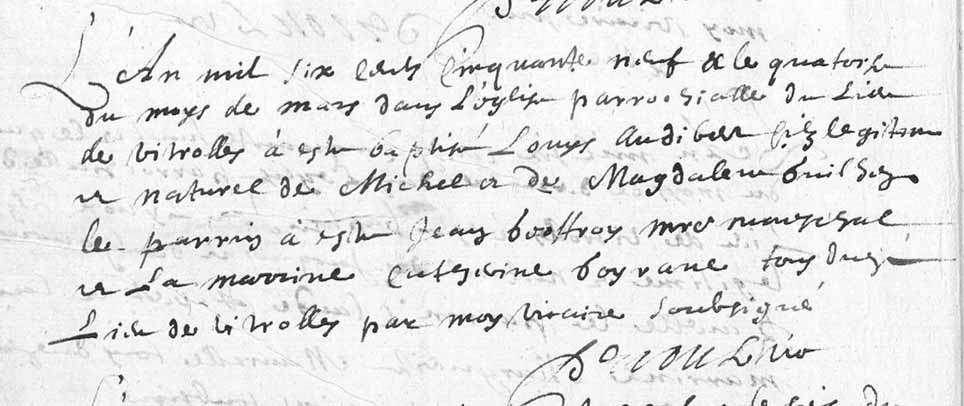 L'An mil six cens Cinquante neuf & le quatorse
du moys de mars dans l'eglise parrochialle du Lieu
de vitrolles à este baptisé Louys Audiber filz legitime
et naturel de Michel et de Magdalene
le parrin à este Jean Joffroy mre mareschal
et La marrine Catherine boyrane tous dud
Lieu de vitrolles par moy vicaire soubsigné